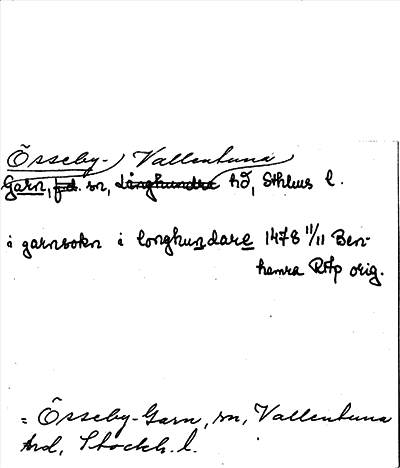 Össeby- Vallentuna
Garn, f.d. sn, Långhundra hd, Sthlms l.
i garnsokn i longhundare 1478 11/11 Ben-
hamra RAp orig.
= Össeby-Garn, sn, Vallentuna
hrd, Stockh. l.